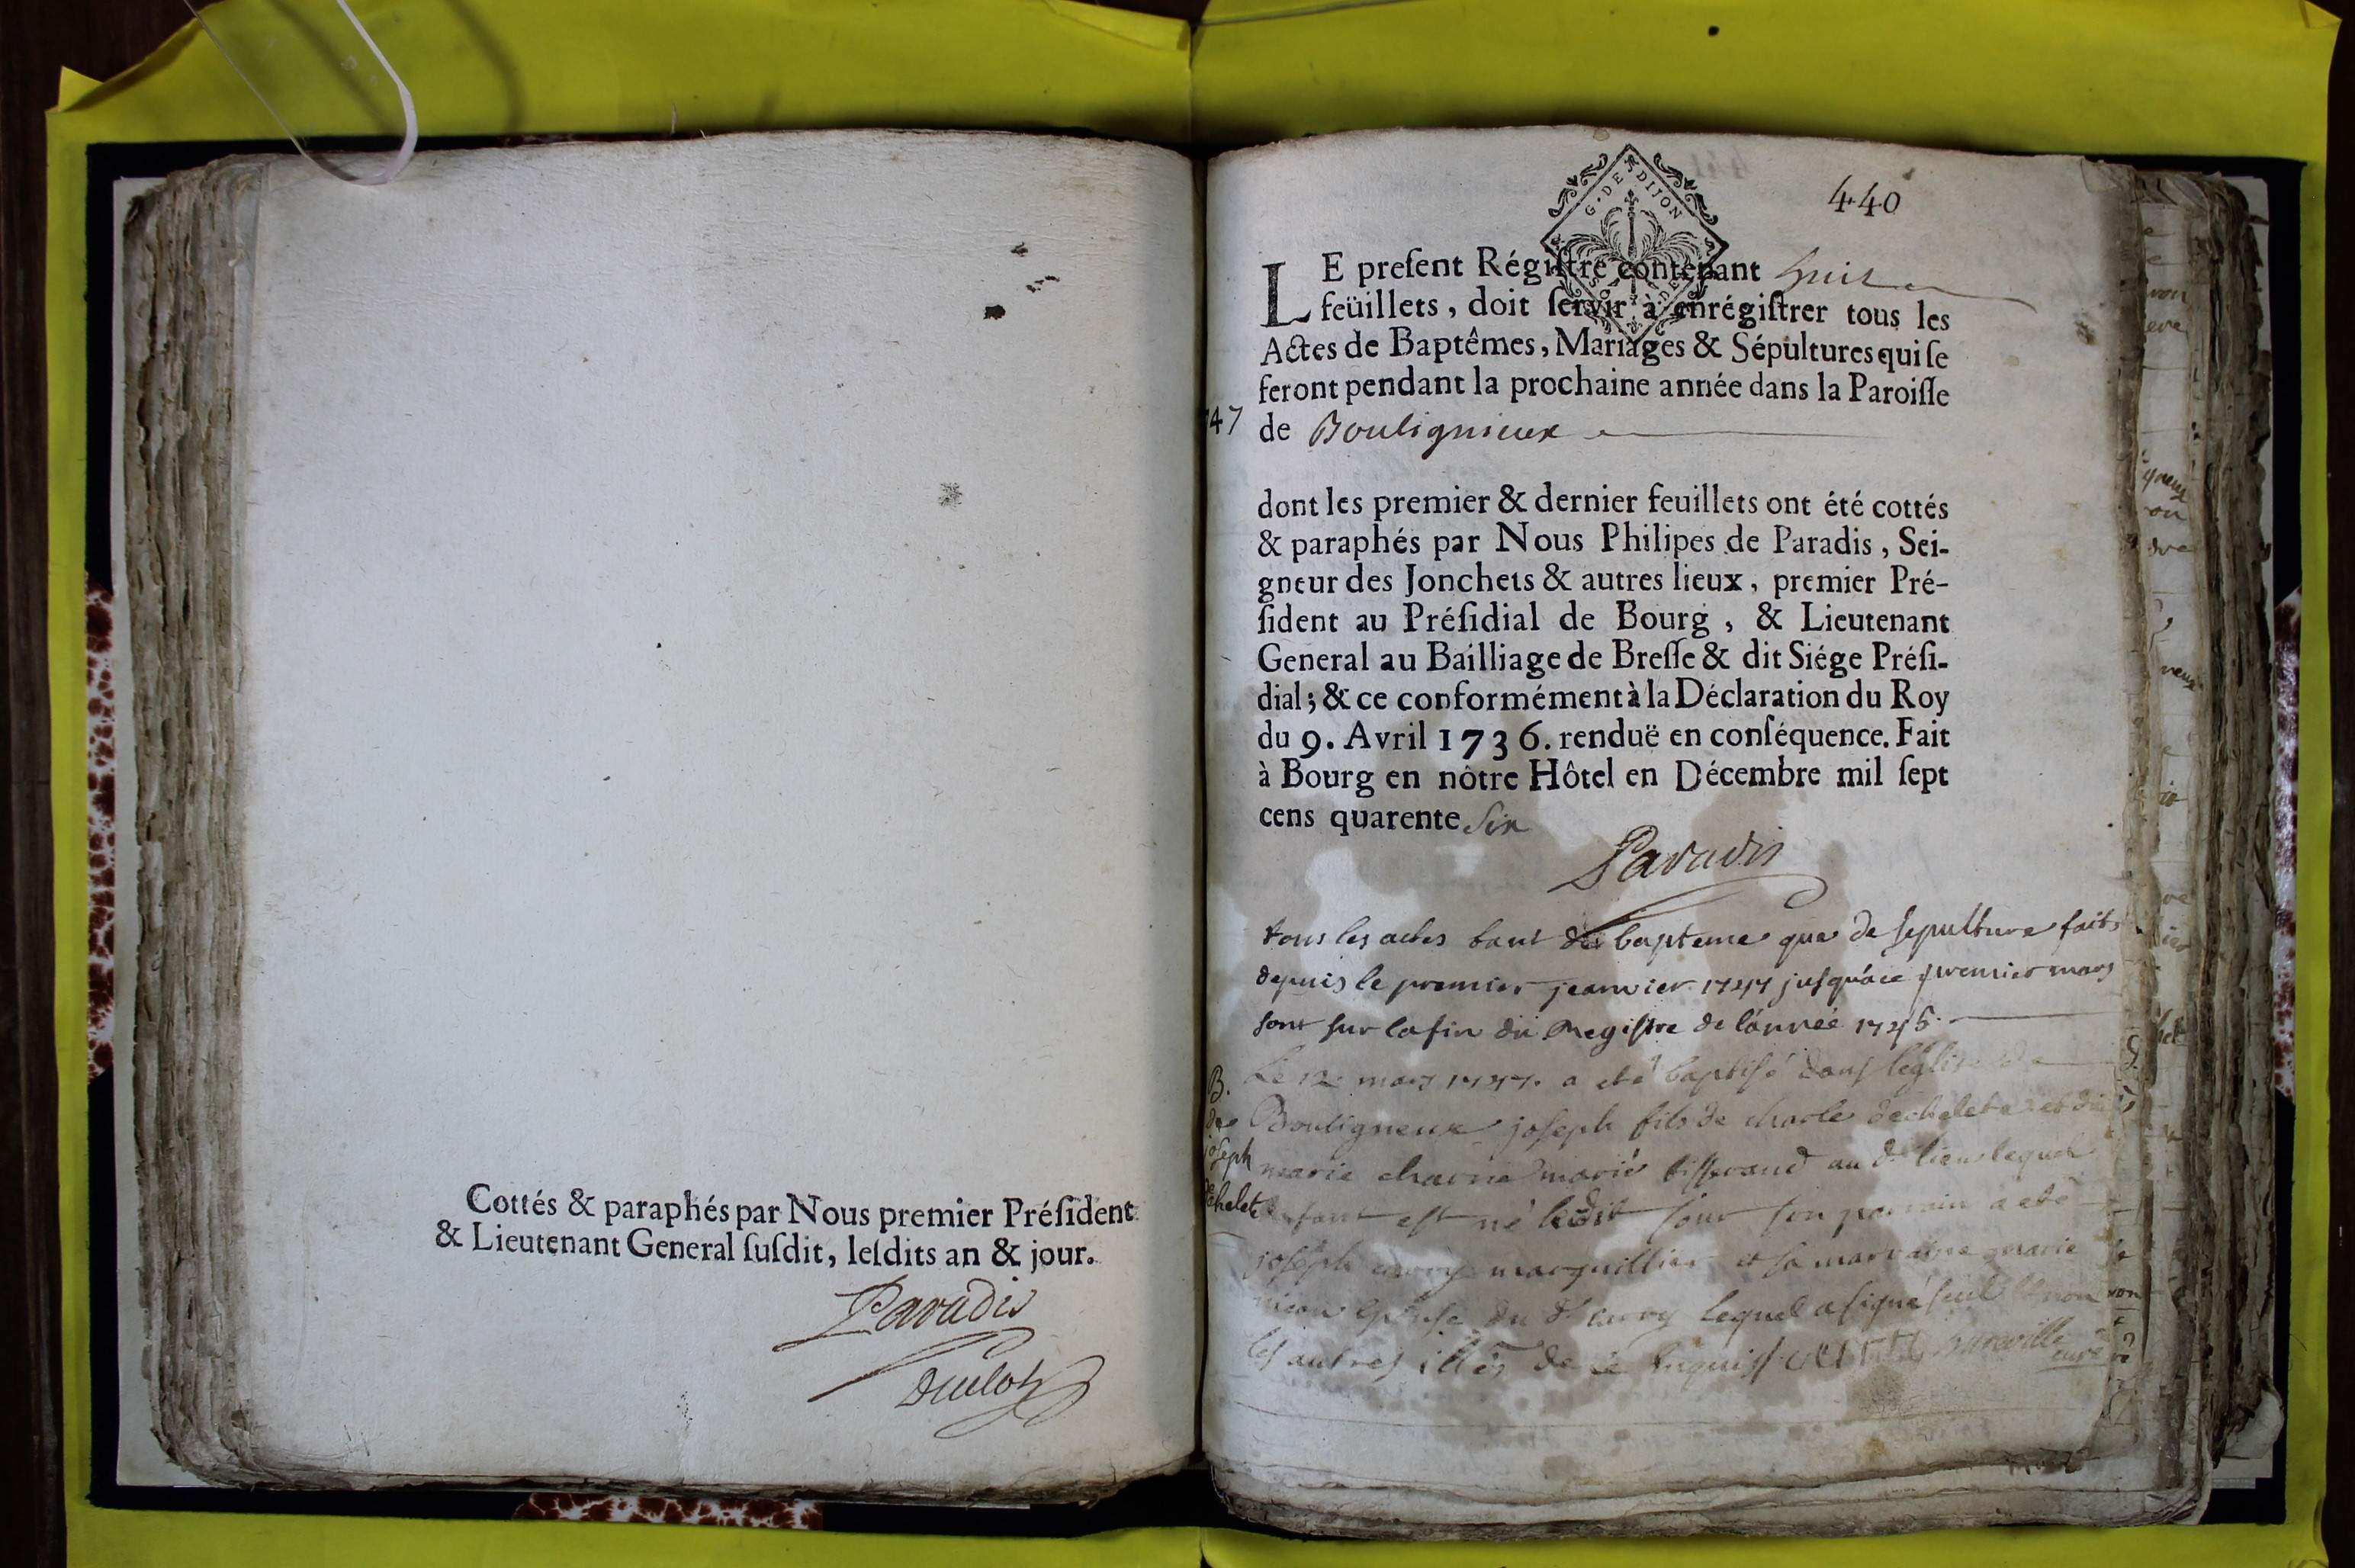 Cottés & paraphés par Nous premier Préſident
& Lieutenant General ſuſdit, leſdits an & jour.
Paradis
440
G. DE DIJON
LE preſent Régiſtre contenant huit
feüillets, doit ſervir à enrégiſtrer tous les
Actes de Baptêmes, Mariages & Sépultures qui ſe
feront pendant la prochaine année dans la Paroiſſe
47
de Boulignieux
dont les premier & dernier feuillets ont été cottés
& paraphés par Nous Philipes de Paradis, Sei-
gneur des Jonchets & autres lieux, premier Pré-
ſident au Préſidial de Bourg, & Lieutenant
General au Bailliage de Breſſe & dit Siége Préſi-
dial; & ce conformément à la Déclaration du Roy
du 9. Avril 1736. renduë en conſéquence. Fait
à Bourg en nôtre Hôtel en Décembre mil ſept
cens quarente Six
Paradis
tous les actes tant de bapteme que de sepulture faits
depuis le premier jeanvier 1747 jusqu'a ce premier mars
sont sur la fin du Registre de l'année 1745
Le 12 mars 1747. a eté baptisé dans l'église de
Bouligneux joseph fils de charle dechelete et de
marie marié tisserand au d. lieu lequel
enfant est né ledit jour son parrain a eté
joseph carry marguillier et sa marraine marie
epouse du d. carry lequel a signé seul et non
les autres illés de ce enquis curé
B.
de
joseph
dechelete